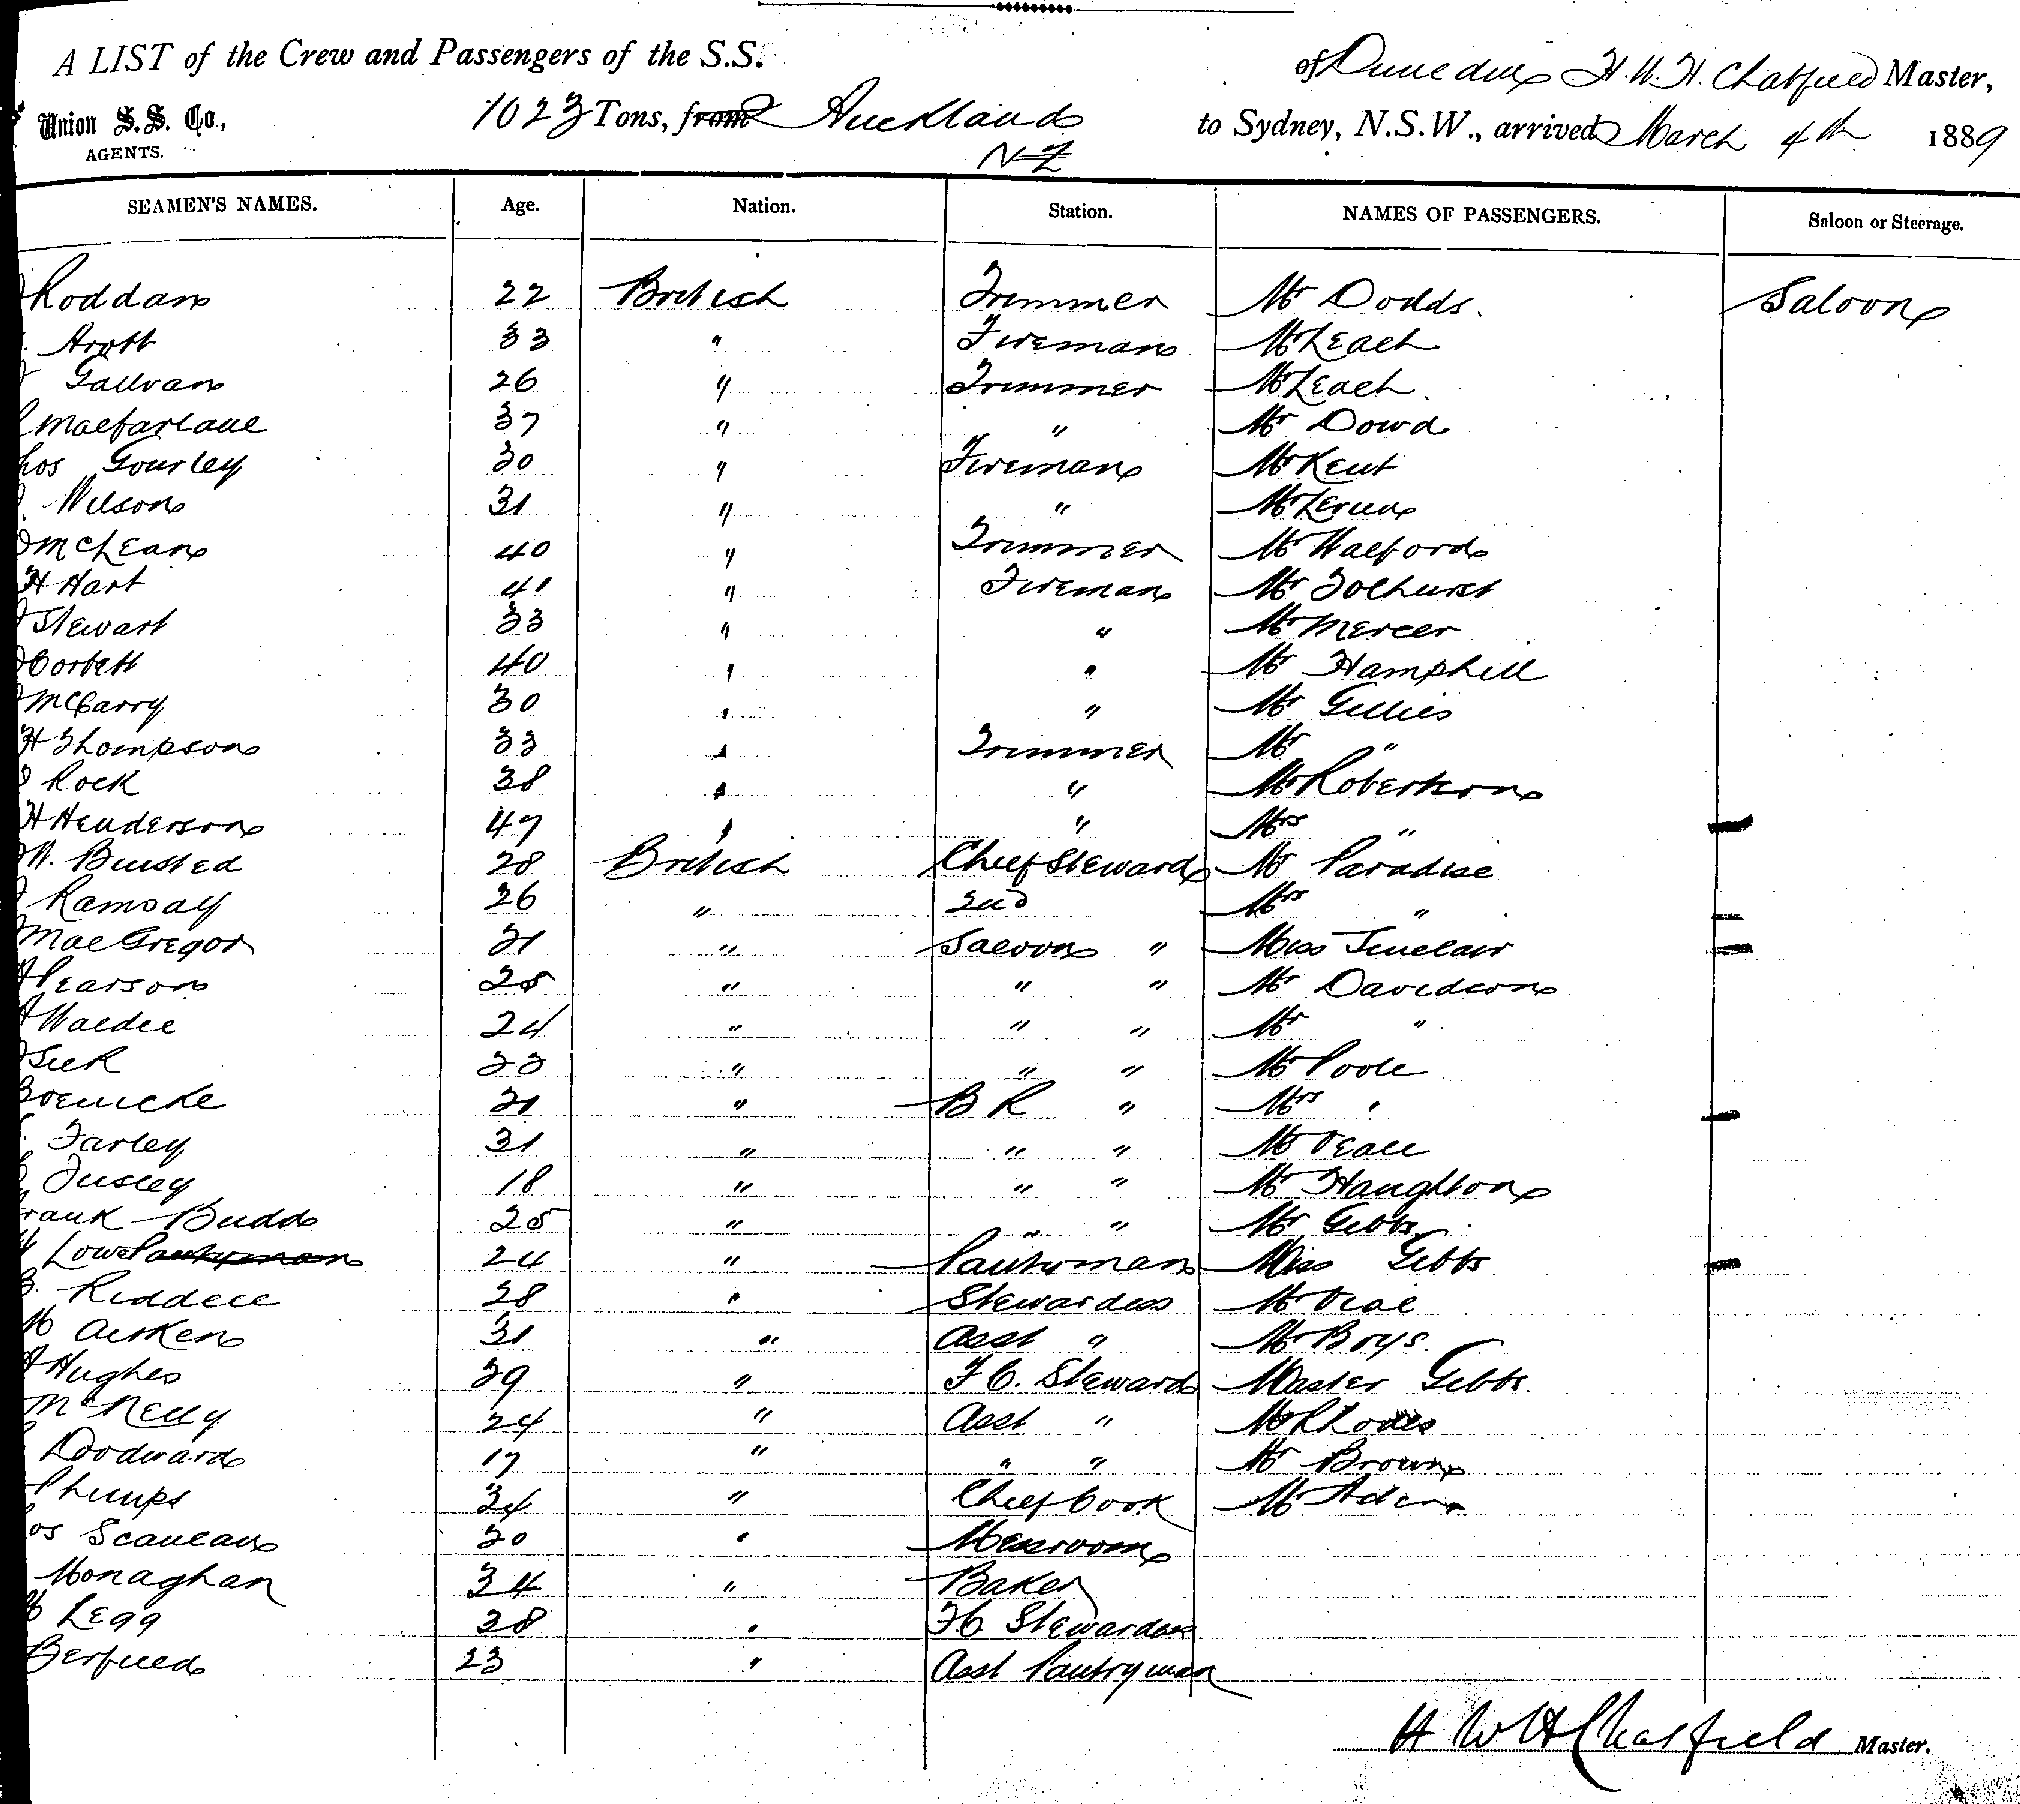 A LIST of the Crew and Passengers of the S.S. of Dunedin H. W. H. Chatfield Master,
Union S. S. Co., AGENTS. 1023 Tons, from Auckland NZ to Sydney, N.S.W., arrived March 4th 1889
SEAMEN'S NAMES. Age. Nation. Station. NAMES OF PASSENGERS. Saloon or Steerage.
Roddan 22 British Trimmer Mr Dodds. Saloon
Arott 33 " Fireman Mr Leach
Gallvan 26 " Trimmer Mr Leach
Macfarlane 37 " " Mr Dowd
hos Gourley 30 " Fireman Mr Kent
Wilson 31 " " Mr
McLean 40 " Trimmer Mr Walford
H Hart 41 " Fireman Mr Tolhurst
Stewart 33 " " Mr Mercer
Corbett 40 " " Mr Hamphill
McGarry 30 " " Mr Gillies
H Thompson 33 " Trimmer Mr "
Rock 38 " " Mr Robertson
H Henderson 47 " " Mrs "
W. Buisted 28 British Chief Steward Mr Paradise
Ramsay 26 " 2nd Mrs "
MacGregor 21 " Saloon " Miss Sinclair
Pearson 25 " " " Mr Davidson
Waldie 24 " " " Mr "
23 " " " Mr Poole
21 " B R " Mrs "
Farley 31 " " " Mr Veall
18 " " " Mr Haughton
rank Budd 25 " " " Mr Gibbs
Lowe Pantryman 24 " Pantryman Miss Gibbs
Riddell 28 " Stewardess Mr
M Aitken 31 " Asst " Mr Boys.
A Hughes 39 " F C. Steward Master Gibbs
McNelly 24 " Asst " Mr Rhodes
Woodward 17 " " " Mr Brown
Phillips 34 " Chief Cook Mr
os Scanlan 20 " Messroom
Monaghan 34 " Baker
Legg 38 " FC Stewardess
Berfield 23 " Asst Pantryman
H W H Chatfield Master.